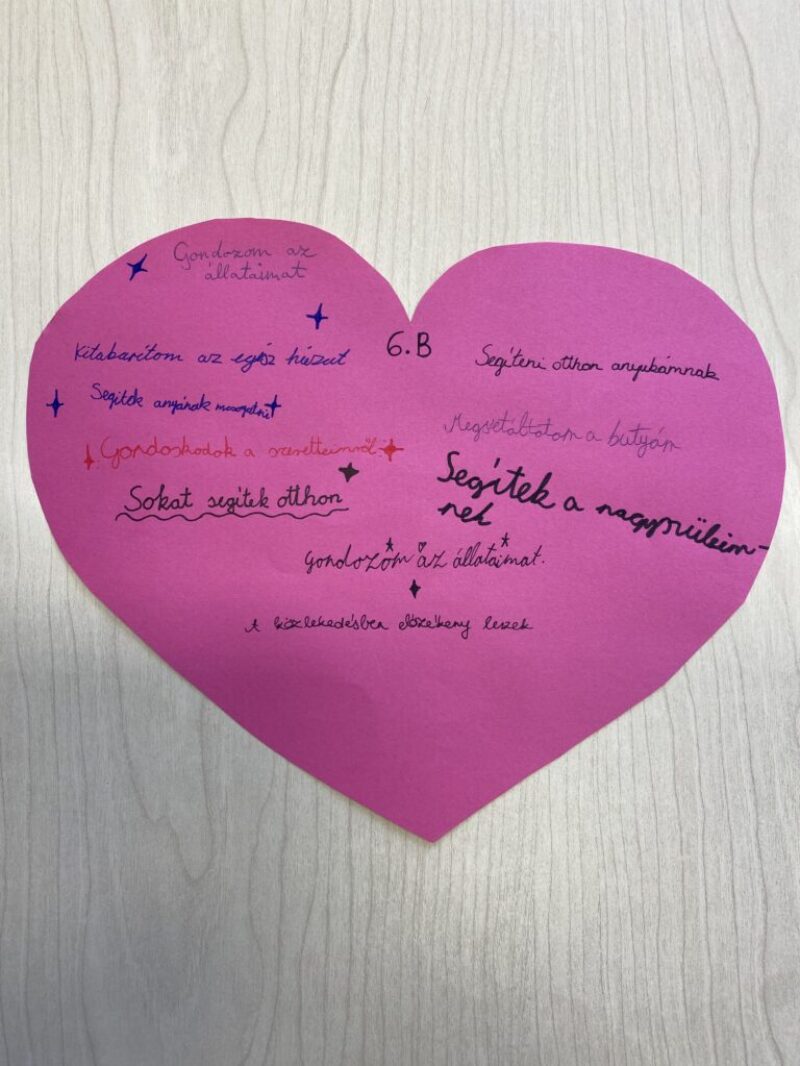 Gondozom az
állataimat
6.B
Kitakarítom az egész házat
Segítek anyának mosogatni
Gondoskodok a szeretteimről
Sokat segítek otthon
Segíteni otthon anyukámnak
Megsétáltatom a kutyám
Segítek a nagyszüleim-
nek
Gondozom az állataimat.
A közlekedésben előzékeny leszek